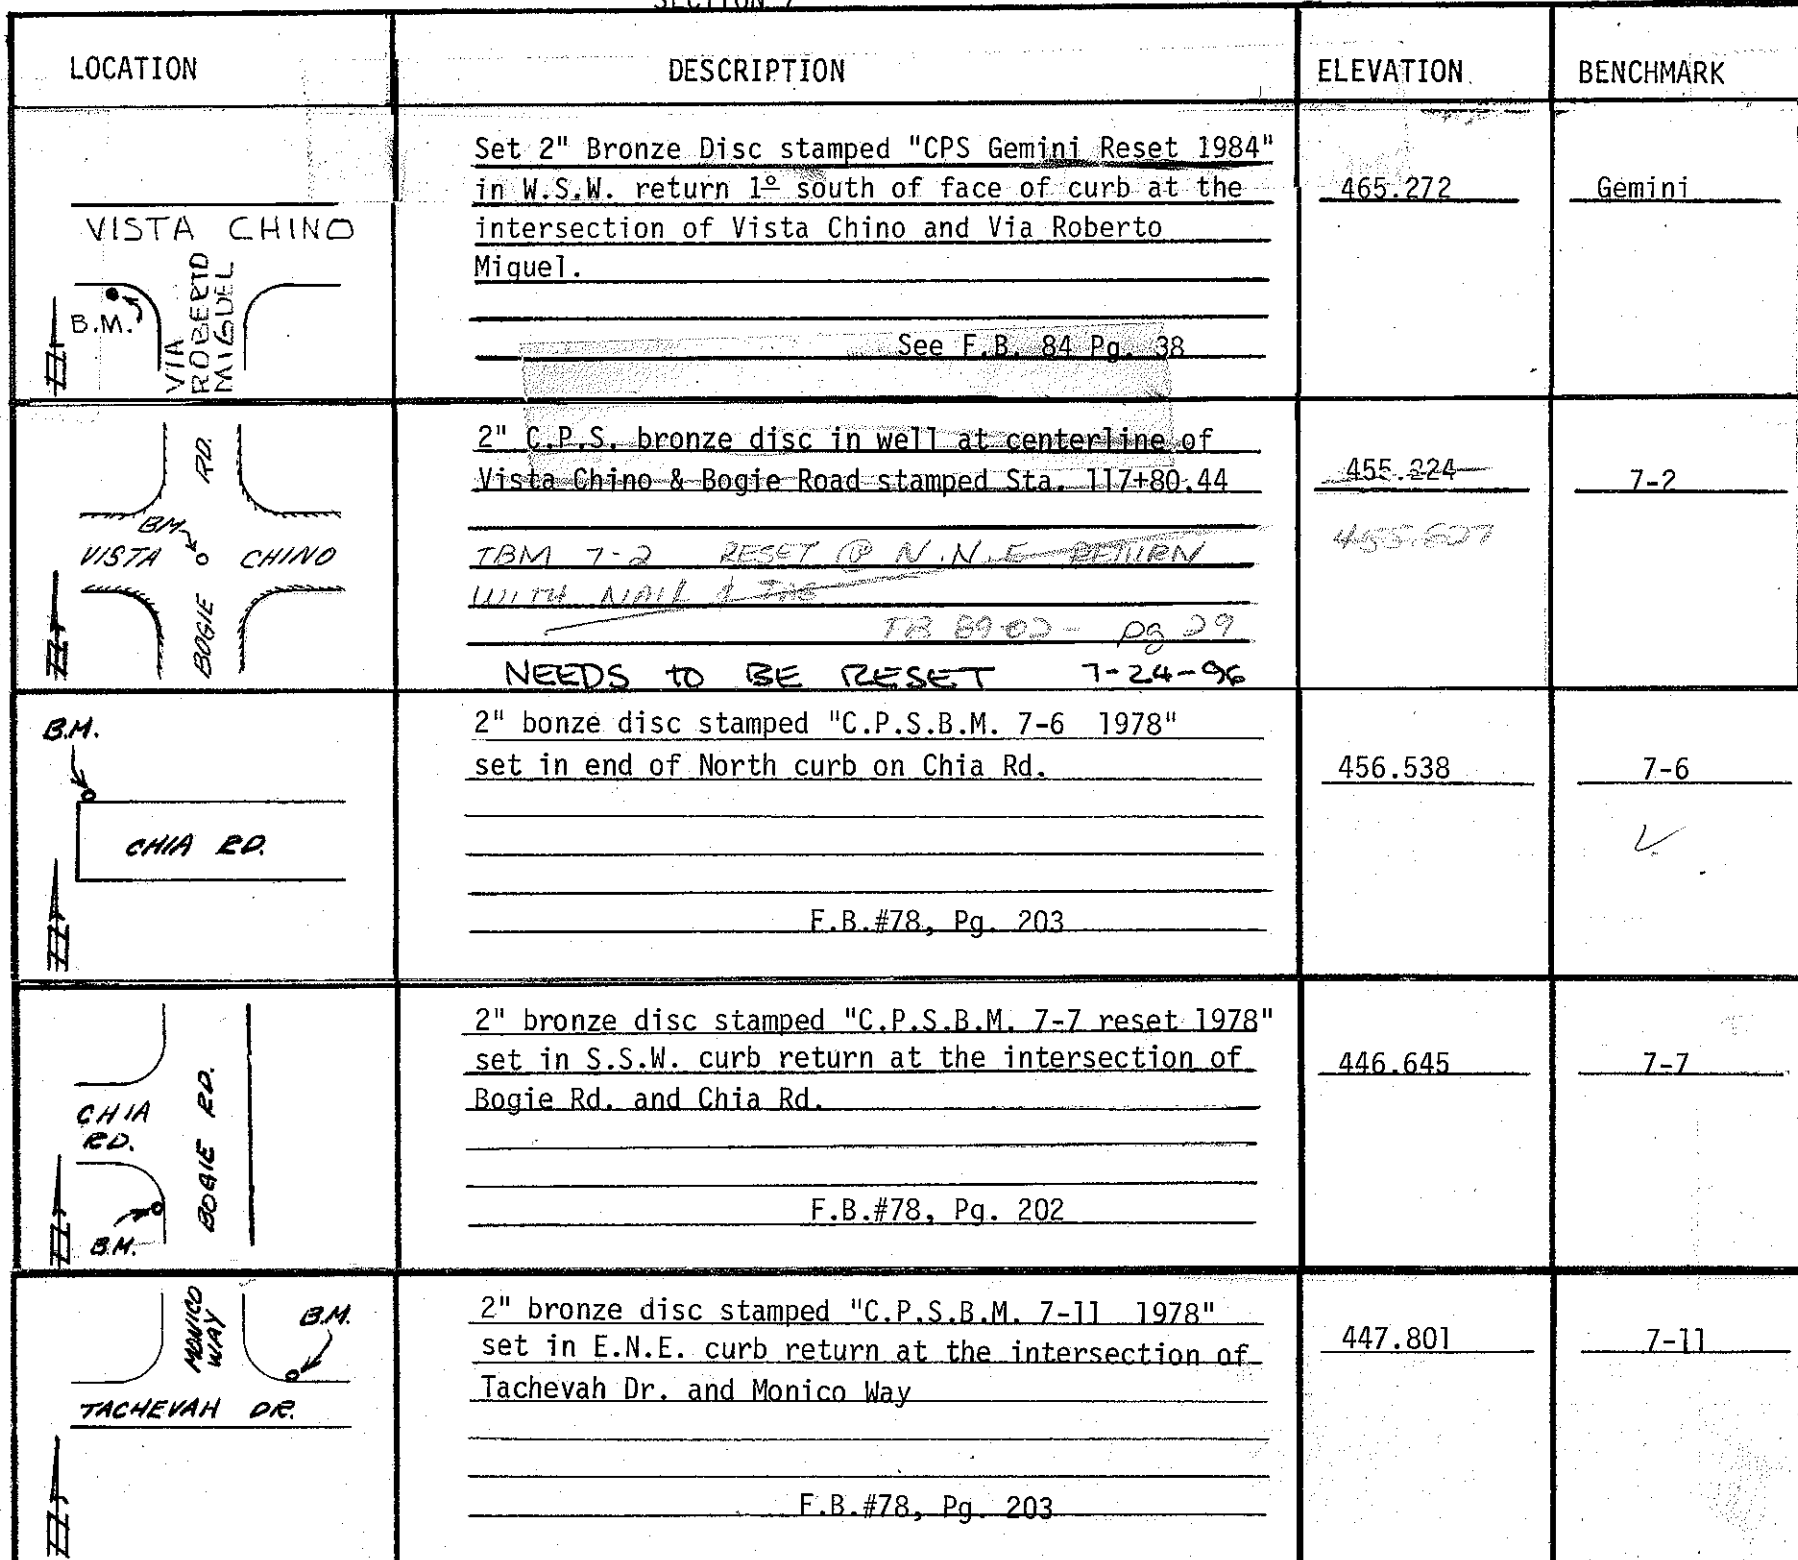 SECTION 7
LOCATION DESCRIPTION ELEVATION BENCHMARK
VISTA CHINO
VIA ROBERTO MIGUEL
B.M.
Set 2" Bronze Disc stamped "CPS Gemini Reset 1984"
in W.S.W. return 1º south of face of curb at the
intersection of Vista Chino and Via Roberto
Miguel.
See F.B. 84 Pg. 38
465.272
Gemini
RD.
BM
VISTA CHINO
BOGIE
2" C.P.S. bronze disc in well at centerline of
Vista Chino & Bogie Road stamped Sta. 117+80.44
TBM 7-2 RESET @ N.N.E RETURN
WITH NAIL &
89-02- pg 29
NEEDS to BE RESET 7-24-96
455.224
7-2
B.M.
CHIA RD.
2" bonze disc stamped "C.P.S.B.M. 7-6 1978"
set in end of North curb on Chia Rd.
F.B.#78, Pg. 203
456.538
7-6
CHIA
RD.
BOGIE RD.
B.M.
2" bronze disc stamped "C.P.S.B.M. 7-7 reset 1978"
set in S.S.W. curb return at the intersection of
Bogie Rd. and Chia Rd.
F.B.#78, Pg. 202
446.645
7-7
MONICO
WAY
B.M.
TACHEVAH DR.
2" bronze disc stamped "C.P.S.B.M. 7-11 1978"
set in E.N.E. curb return at the intersection of
Tachevah Dr. and Monico Way
F.B.#78, Pg. 203
447.801
7-11